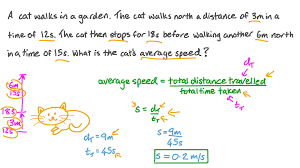 A cat walks in a garden. The cat walks north a distance of 3m in a
time of 12s. The cat then stops for 18s before walking another 6m north
in a time of 15s. What is the cat's average speed?
dT
average speed = total distance travelled
total time taken
tT
6m
15s
18s
3m
12s
s = dT
tT
dT = 9m
tT = 45s
s = 9m
45s
s = 0.2 m/s